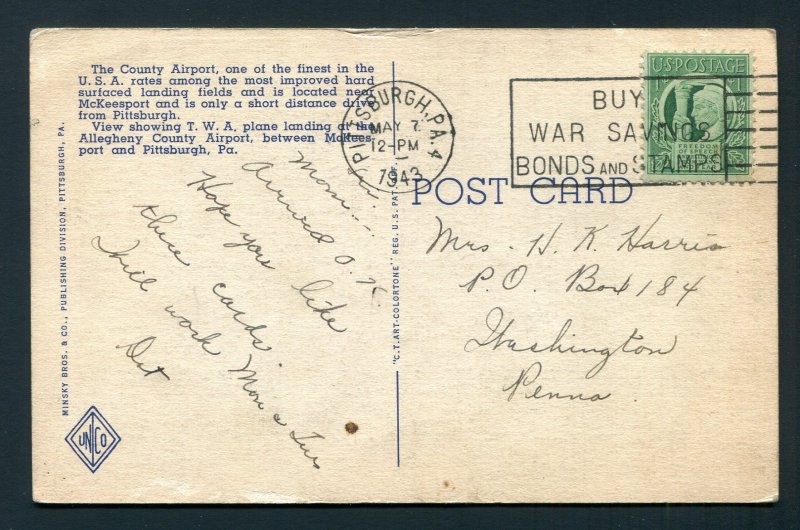 The County Airport, one of the finest in the
U. S. A. rates among the most improved hard
surfaced landing fields and is located near
McKeesport and is only a short distance drive
from Pittsburgh.
View showing T. W. A. plane landing at the
Allegheny County Airport, between McKees-
port and Pittsburgh, Pa.
MINSKY BROS. & CO., PUBLISHING DIVISION, PITTSBURGH, PA.
UNCO
Mom:
Arrived O. K.
Hope you like
these cards.
Will work Mon &
"C.T. ART-COLORTONE" REG. U.S. PAT. OFF.
PITTSBURGH, PA. 4
MAY 7
12-PM
1943
BUY
WAR SAVINGS
BONDS AND STAMPS
U.S. POSTAGE
1
FREEDOM
OF SPEECH
POST CARD
Mrs. H. K. Harris
P. O. Box 184
Washington
Penna.